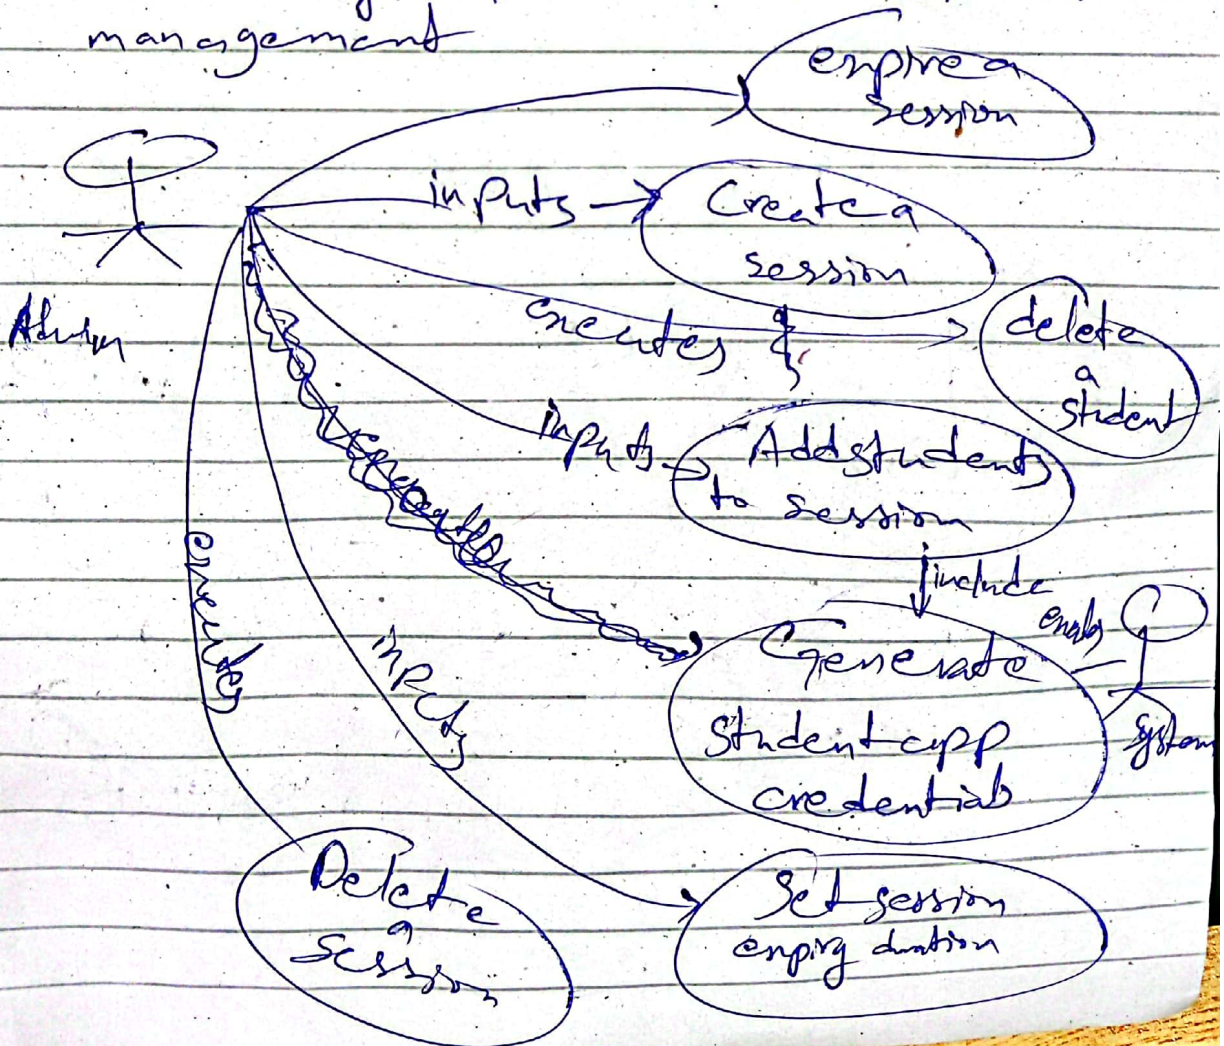 management
expire a
session
inputs
Create a
session
Admin
executes
delete
a
student
inputs
Add students
to session
include
Generate
Student app
credentials
System
executes
inputs
Delete
a
Session
Set session
expiry duration